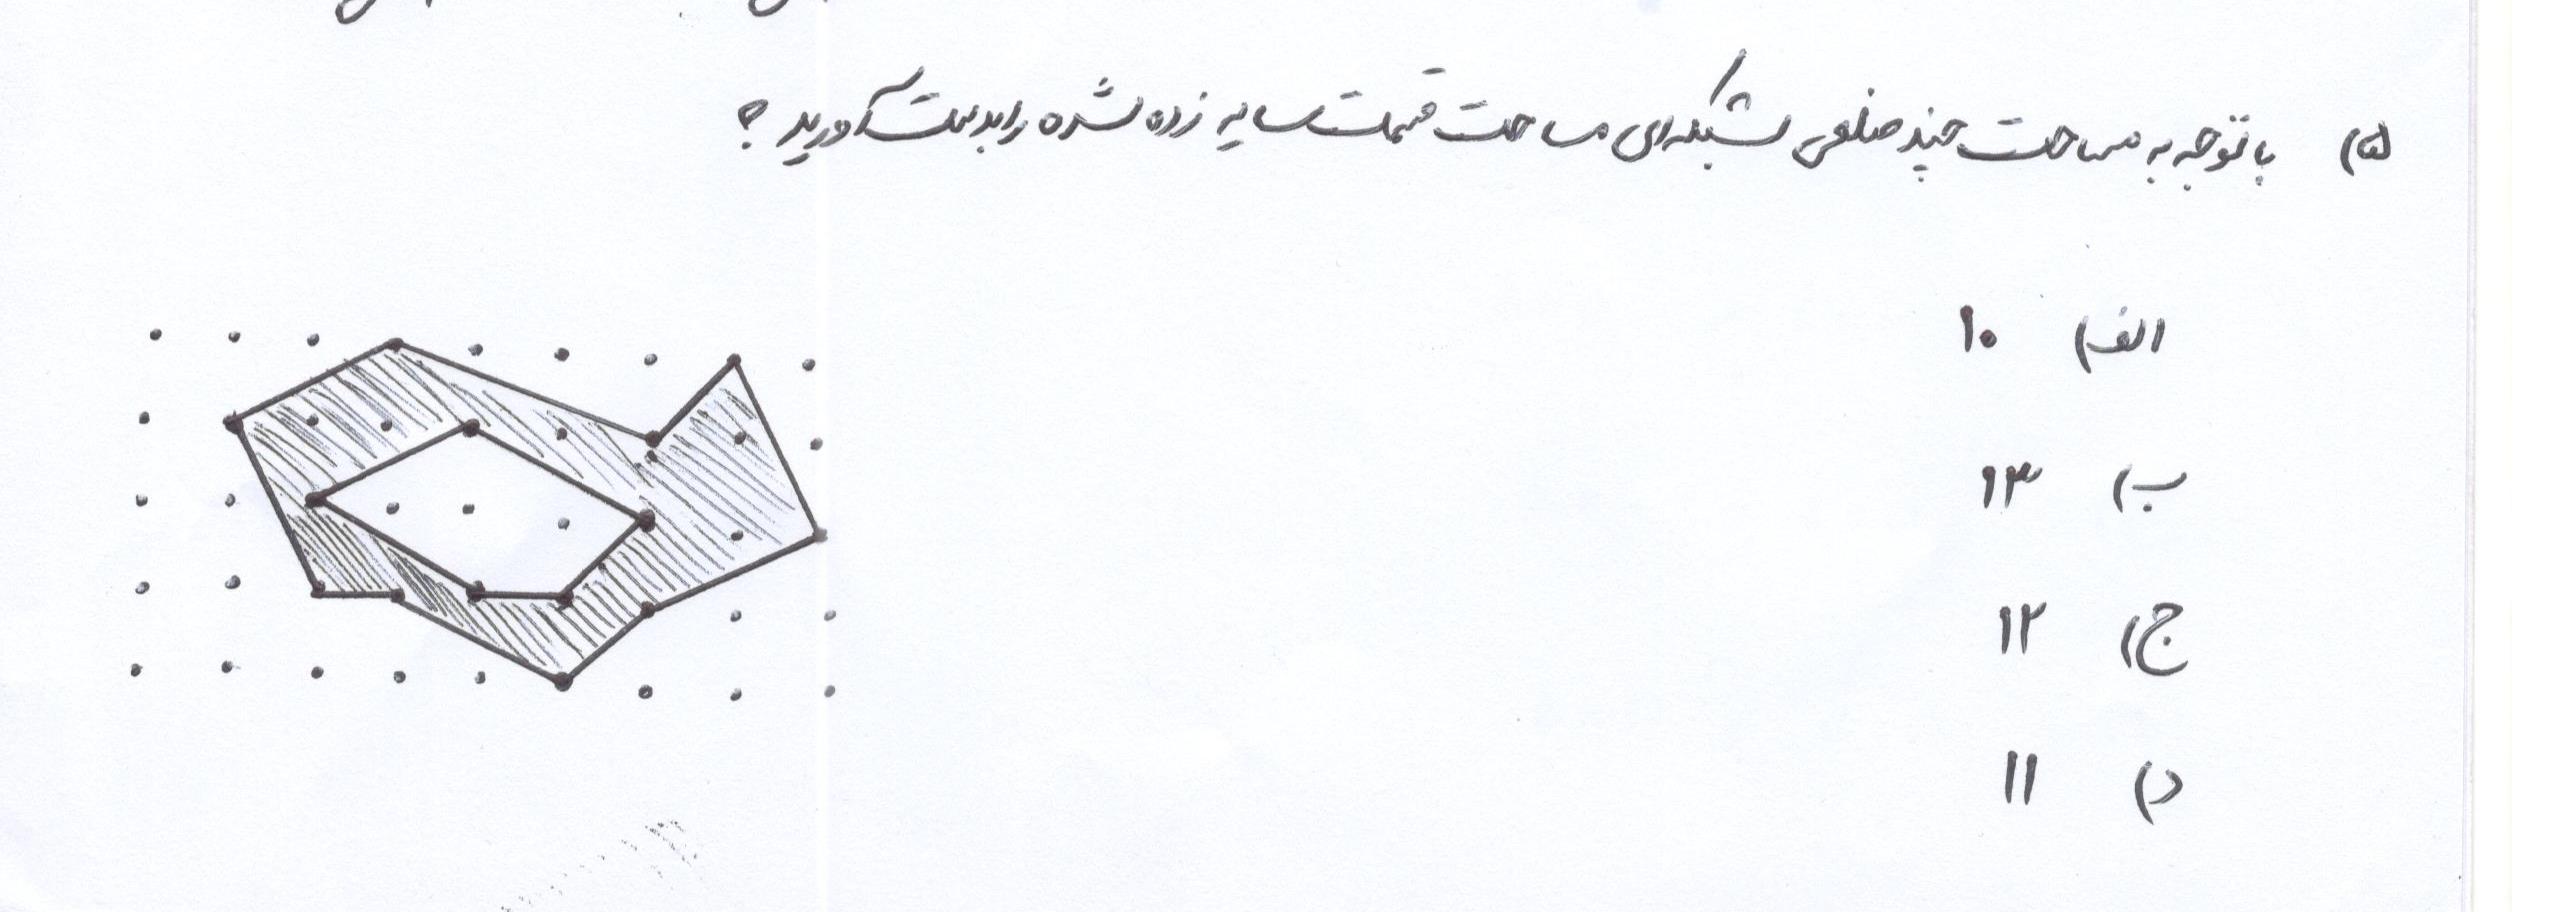 ۵) با توجه به مساحت چند ضلعی شبکه‌ای مساحت قسمت سایه زده شده را بدست آورید ؟
الف) ۱۰
ب) ۱۳
ج) ۱۲
د) ۱۱